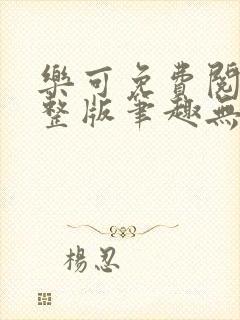 樂可免費閱
整版筆趣無
楊忍